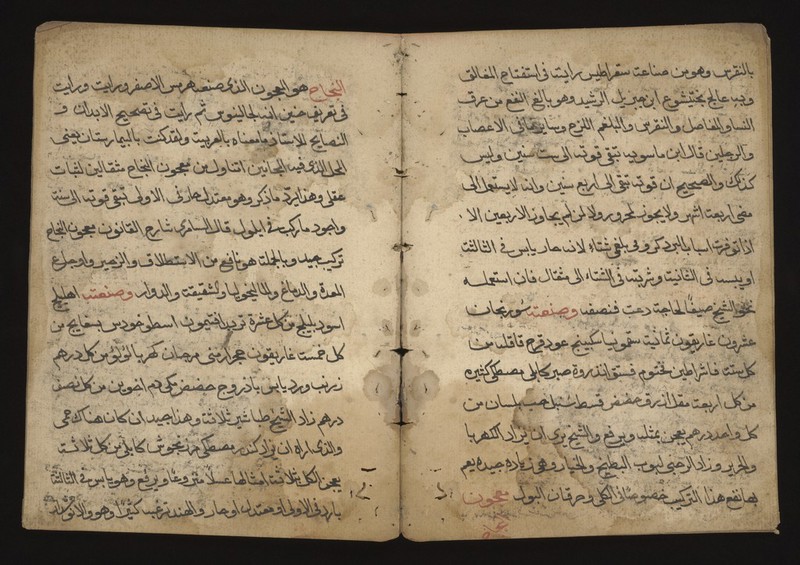 بالنقرس وهو من صناعة سقراطيس رايته في استفتاح المغالق
وبه عالج بختيشوع ابن جبريل الرشيد وهو بالغ النفع من عرق
النسا والمفاصل والنقرس والبلغم اللزج وسائر ما في الاعصاب
والرجلين قال ابن ماسويه تبقى قوته الى ست سنين وليس
كذلك والصحيح ان قوته تبقى الى اربع سنين وانه لا يستعمل الى
مضي اربعة اشهر ولا يجوز لمحرور ولا لمن لم يجاوز الاربعين الا
اذا توفرت اسبابا لبرد كروفي بلغمي شتاء لانه حار يابس في الثالثة
او يبسه في الثانية وشربته في الشتاء الى مثقال فان استعمله
نحو الشيخ صيفا لحاجة دعت فنصفه وصنعته سورنجان
عشرون غاريقون ثمانية سقمونيا سكبينج عود قرح قاقلة من
كل ستة فاشراطين مختوم فستق انذروة صبر كابلي مصطكي كثيره
من كل اربعة مقل ازرق حضض قسط سنبل حب بلسان من
كل واحد درهم يعجن بمثليه ويرفع والشيخ يرى ان يزاد الكهربا
والحرير وزاد الرخبي لبوب البطيخ والخيار وهي زياده جيده يعم
بها نفع هذا التركيب خصوصا في الكلى وحرقان البول معجون
النجاح هو المعجون الذي صنعه هرمس الاصغر ورايت ورايت
في تعريف حنين انه لجالينوس ثم رايت في تصحيح الابدان و
النصايح للاستاد ما معناه بالعربية ولقد كنت بالبيمارستان يعني
المحل الذي فيه المجانين اتناول من معجون النجاح مثقالين لثبات
عقلي وهذا يرد ما ذكر وهو معتدل حار في الاولى تبقى قوته الى سنة
واجود ما ركب في ايلول قال السامري شارح القانون معجون النجاح
تركيب جيد وبالجملة هو نافع من الاستطلاق والزحير واوجاع
المعدة والدماغ والماليخوليا والشقيقة والدوار وصنعته اهليلج
اسود بليلج من كل عشرة تربد افتيمون اسطوخودس بسفايج من
كل خمسة غاريقون حجر ارمني مرجان كهربا لولو من كل درهم
زرنب ورد يابس باذروج حضض مكي دم اخوين من كل نصف
درهم زاد الشيخ طباشير ثلاثة وهذا جيد ان كان هناك حمى
والذي اراه ان يزاد كندر مصطكي مرزنجوش كابلي من كل ثلاثة
يعجن الكل بثلاثة امثالها عسلا منزوعا ويرفع وهو يابس في الثالثة
بارد في الاولى او معتدل او حار والهند ترغب كثيرا وهو والانوش